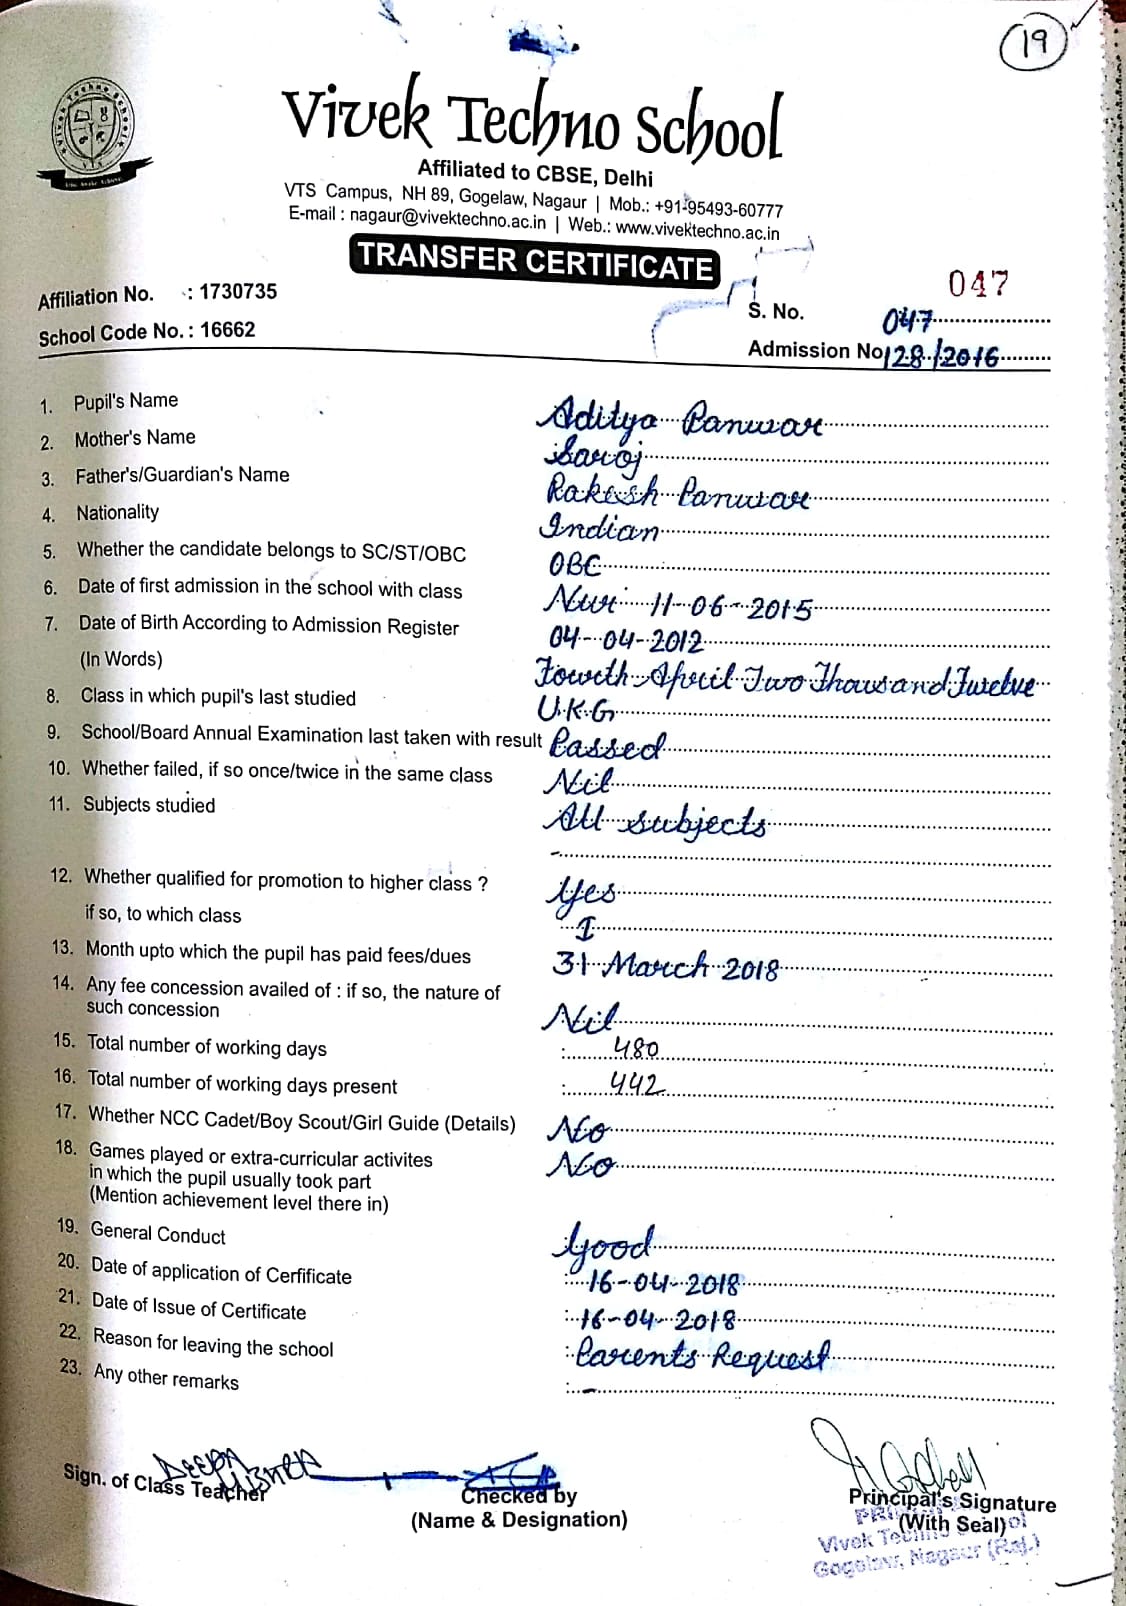 19
Vivek Techno School
Affiliated to CBSE, Delhi
VTS Campus, NH 89, Gogelaw, Nagaur | Mob.: +91-95493-60777
E-mail : nagaur@vivektechno.ac.in | Web.: www.vivektechno.ac.in
TRANSFER CERTIFICATE
047
Affiliation No. : 1730735
S. No. 047
School Code No. : 16662
Admission No 128/2016
1. Pupil's Name Aditya Panwar
2. Mother's Name Saroj
3. Father's/Guardian's Name Rakesh Panwar
4. Nationality Indian
5. Whether the candidate belongs to SC/ST/OBC OBC
6. Date of first admission in the school with class Nur 11-06-2015
7. Date of Birth According to Admission Register 04-04-2012
(In Words) Fourth April Two Thousand Twelve
8. Class in which pupil's last studied U.K.G
9. School/Board Annual Examination last taken with result Passed
10. Whether failed, if so once/twice in the same class Nil
11. Subjects studied All subjects
-
12. Whether qualified for promotion to higher class ? Yes
if so, to which class I
13. Month upto which the pupil has paid fees/dues 31 March 2018
14. Any fee concession availed of : if so, the nature of
such concession Nil
15. Total number of working days : 480
16. Total number of working days present : 442
17. Whether NCC Cadet/Boy Scout/Girl Guide (Details) No
18. Games played or extra-curricular activites No
in which the pupil usually took part
(Mention achievement level there in)
19. General Conduct Good
20. Date of application of Cerfificate : 16-04-2018
21. Date of Issue of Certificate : 16-04-2018
22. Reason for leaving the school : Parents Request
23. Any other remarks : -
DEEPA
Sign. of Class Teacher
Checked by
(Name & Designation)
Principal's Signature
(With Seal)
Vivek
Gogelaw, Nagaur (Raj.)